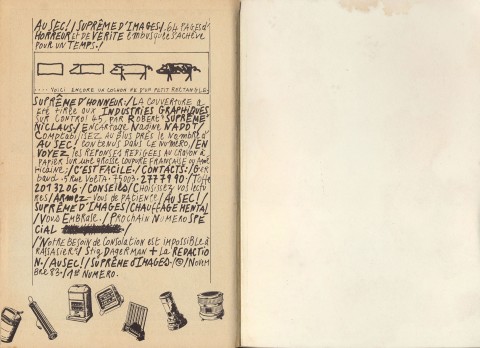 AU SEC!/SUPRÊME D'IMAGES/. 64 PAGES d'
HORREUR et DE VERITE embusquée S'ACHÈVE
POUR UN TEMPS./
.... VOICI ENCORE UN COCHON NÉ D'UN PETIT RECTANGLE.
SUPRÊME D'HONNEUR:/LA COUVERTURE a
ETE TIRÉE AUX INDUSTRIES GRAPHIQUES
SUR CONTROL 45 PAR ROBERT SUPRÊME
NICLAUS/ENCARTAGE NADINE NADOT/
COMPTABILISEZ AU PLUS PRÈS LE NOMBRE d'
AU SEC! CONTENUS DANS CE NUMERO/EN
VOYEZ LES RÉPONSES REDIGEES AU CRAYON À
PAPIER SUR UNE GROSSE COUPURE FRANÇAISE OU AMÉ
RICAINE:/C'EST FACILE./CONTACTS:/GER
BAUD. 5 RUE VOLTA. 75003. 2777990./TOFFE
2013206./CONSEILS/CHOISISSEZ VOS LECTU
RES/ARMEZ-VOUS DE PATIENCE/AU SEC!/
SUPRÊME D'IMAGES/CHAUFFAGE MENTAL
/VOUS EMBRASE./PROCHAIN NUMERO SPÉ
CIAL
/"NOTRE BESOIN DE CONSOLATION EST IMPOSSIBLE À
RASSASIER"/STIG DAGERMAN + LA REDACTIO
N./AU SEC!/SUPRÊME D'IMAGES./©/NOVEM
BRE 83./1er NUMERO.